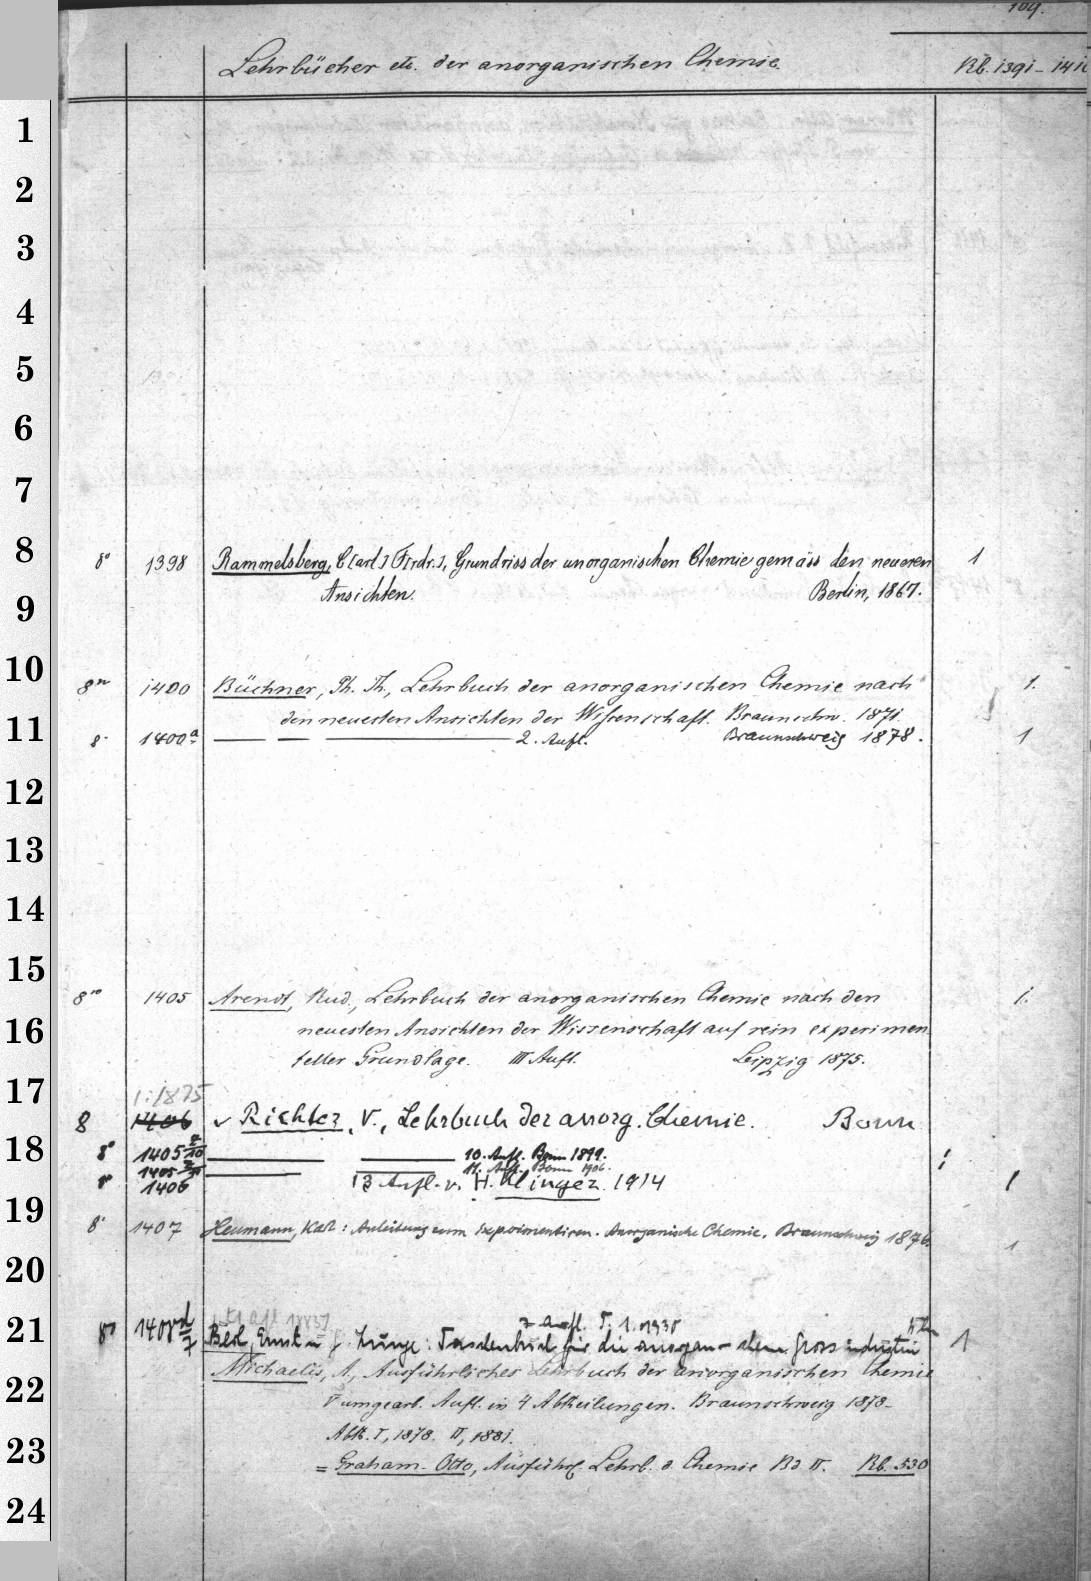 109.
Lehrbücher etc. der anorganischen Chemie. Rb. 1391-141
1
2
3
4
5
6
7
8 8° 1398 Rammelsberg, C[arl] F[rdr.], Grundriss der unorganischen Chemie gemäss den neueren 1
9 Ansichten. Berlin, 1867.
10 8vo 1400 Büchner, Ph. Th., Lehrbuch der anorganischen Chemie nach 1.
den neuesten Ansichten der Wissenschaft. Braunschw. 1871.
11 8. 1400a — — — 2. Aufl. Braunschweig 1878. 1
12
13
14
15
8vo 1405 Arendt, Rud., Lehrbuch der anorganischen Chemie nach den 1.
16 neuesten Ansichten der Wissenschaft auf rein experimen
teller Grundlage. III Aufl. Leipzig 1875.
17 1:1875
8 1406 v Richter, V., Lehrbuch der anorg. Chemie. Bonn
18 8° 1405 2/10 — — 10. Aufl. Bonn 1899.
1405 — — 11. Aufl. Bonn 1906.
8° 1406 13 Aufl. v. H. Klinger. 1914 1
19
8. 1407 Heumann, Karl: Anleitung zum Experimentiren. Anorganische Chemie. Braunschweig 1876. 1
20
7 Aufl. T. 1. 1930
21 8° 1408 d/7 Berl, Ernst u. Lunge: Taschenbuch für die anorgan-chem. Grossindustrie 1
22 Michaelis, A., Ausführliches Lehrbuch der anorganischen Chemie
V umgearb. Aufl. in 4 Abtheilungen. Braunschweig 1878-
23 Abth. I, 1878. II, 1881.
= Graham-Otto, Ausführl. Lehrb. d. Chemie Bd II. Rb. 530
24